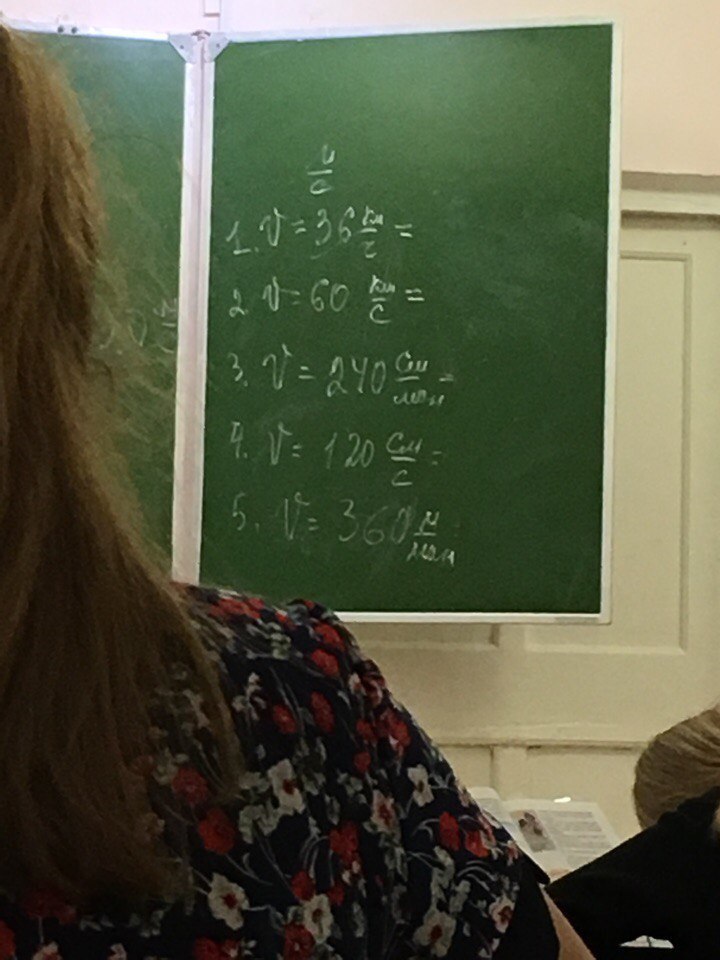 м/с
1. V = 36 км/ч =
2. V = 60 км/с =
3. V = 240 см/мин =
4. V = 120 см/с =
5. V = 360 м/мин